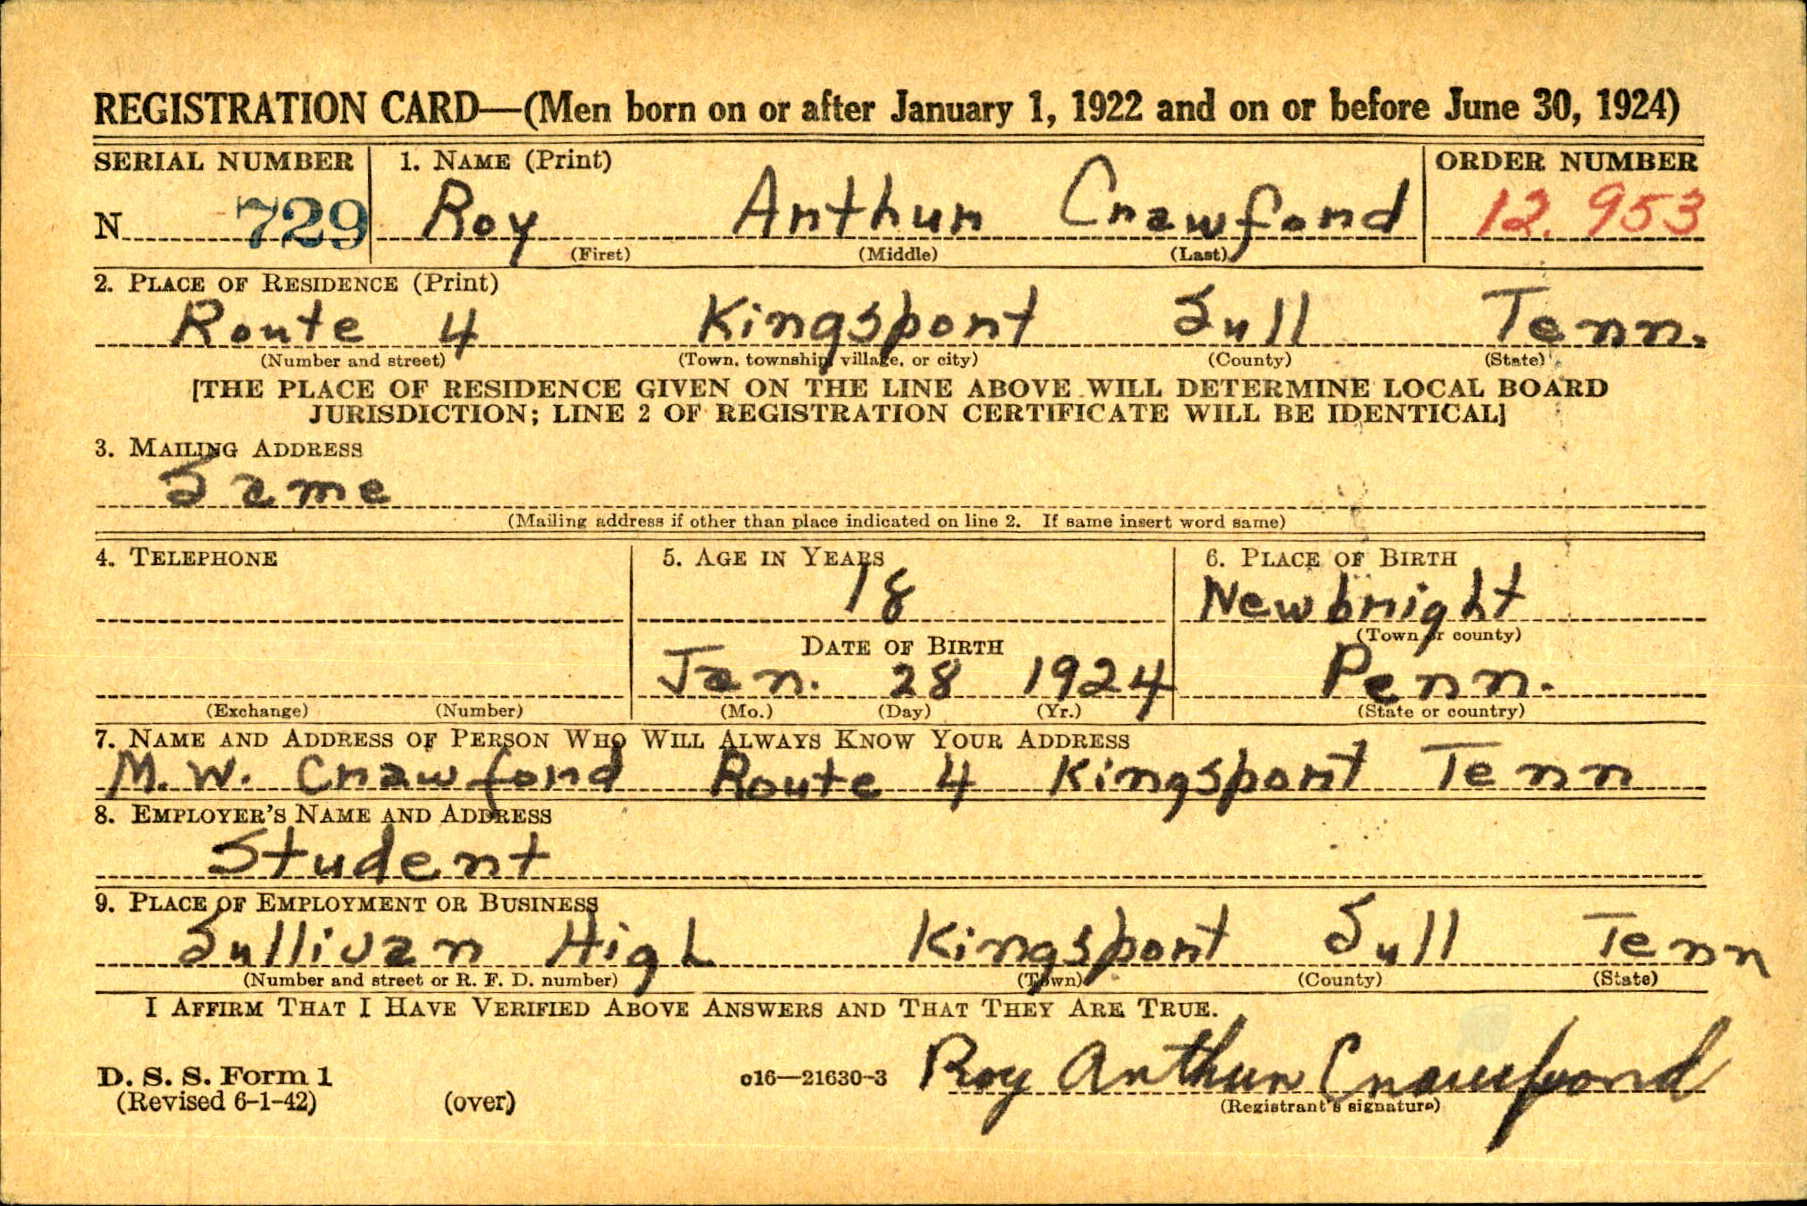 REGISTRATION CARD—(Men born on or after January 1, 1922 and on or before June 30, 1924)
SERIAL NUMBER 1. NAME (Print) ORDER NUMBER
N 729 Roy Arthur Crawford 12,953
(First) (Middle) (Last)
2. PLACE OF RESIDENCE (Print)
Route 4 Kingsport Sull Tenn.
(Number and street) (Town, township, village, or city) (County) (State)
[THE PLACE OF RESIDENCE GIVEN ON THE LINE ABOVE WILL DETERMINE LOCAL BOARD
JURISDICTION; LINE 2 OF REGISTRATION CERTIFICATE WILL BE IDENTICAL]
3. MAILING ADDRESS
Same
(Mailing address if other than place indicated on line 2. If same insert word same)
4. TELEPHONE 5. AGE IN YEARS 6. PLACE OF BIRTH
18 Newbright
(Town or county)
DATE OF BIRTH
Jan. 28 1924 Penn.
(Exchange) (Number) (Mo.) (Day) (Yr.) (State or country)
7. NAME AND ADDRESS OF PERSON WHO WILL ALWAYS KNOW YOUR ADDRESS
M. W. Crawford Route 4 Kingsport Tenn
8. EMPLOYER'S NAME AND ADDRESS
Student
9. PLACE OF EMPLOYMENT OR BUSINESS
Sullivan High Kingsport Sull Tenn
(Number and street or R. F. D. number) (Town) (County) (State)
I AFFIRM THAT I HAVE VERIFIED ABOVE ANSWERS AND THAT THEY ARE TRUE.
D. S. S. Form 1 c16—21630-3 Roy Arthur Crawford
(Revised 6-1-42) (over) (Registrant's signature)